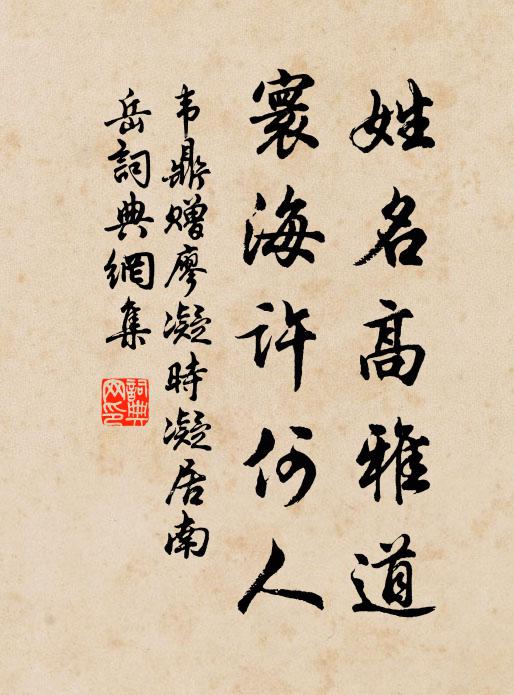 姓名高雅道
寰海许何人
韦鼎赠廖凝时凝居南
岳詞典網集
詞典网印